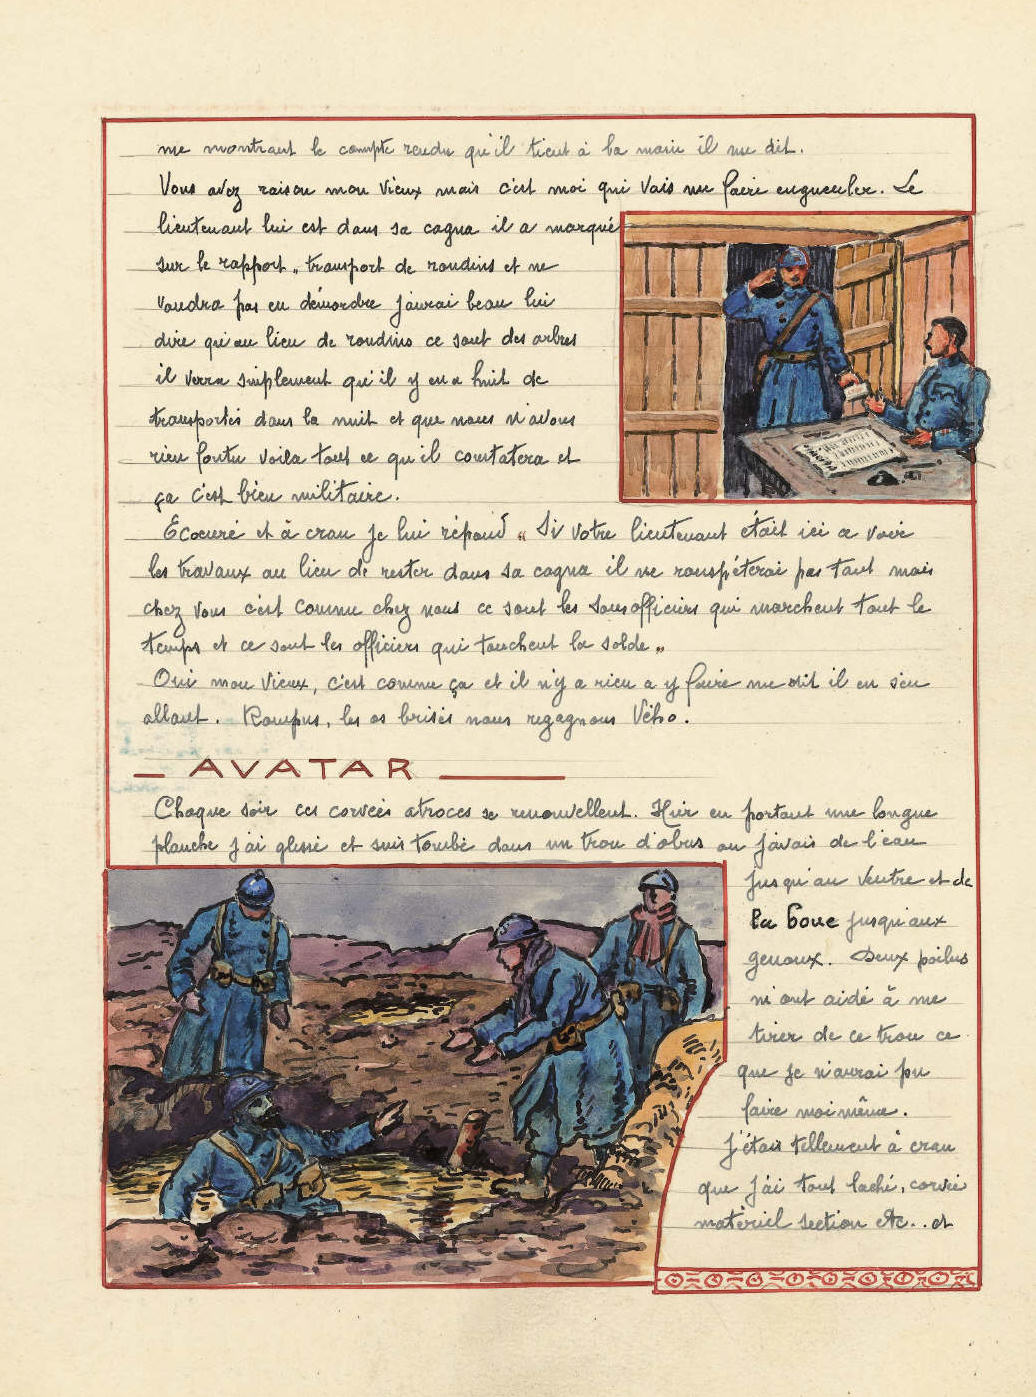 me montrant le compte rendu qu'il tient à la main il me dit.
Vous avez raison mon vieux mais c'est moi qui vais me faire engueuler. Le
lieutenant lui est dans sa cagna il a marqué
sur le rapport „ transport de rondins et ne
voudra pas en démordre j'aurai beau lui
dire qu'au lieu de rondins ce sont des arbres
il verra simplement qu'il y en a huit de
transportés dans la nuit et que nous n'avons
rien foutu voila tout ce qu'il constatera et
ça c'est bien militaire.
Ecoeuré et à cran je lui répond „ Si votre lieutenant était ici a voir
les travaux au lieu de rester dans sa cagna il ne rouspéterai pas tant mais
chez vous c'est comme chez nous ce sont les sousofficiers qui marchent tout le
temps et ce sont les officiers qui touchent la solde „
Oui mon vieux, c'est comme ça et il n'y a rien a y faire me dit il en s'en
allant. Rompus, les os brisés nous regagnons Vého.
— AVATAR —
Chaque soir ces corvées atroces se renouvellent. Hier en portant une longue
planche j'ai glissé et suis tombé dans un trou d'obus ou j'avais de l'eau
jusqu'au ventre et de
la boue jusqu'aux
genoux. Deux poilus
m'ont aidé à me
tirer de ce trou ce
que je n'aurai pu
faire moi même.
J'étais tellement à cran
que j'ai tout laché, corvée
matériel section etc.. et